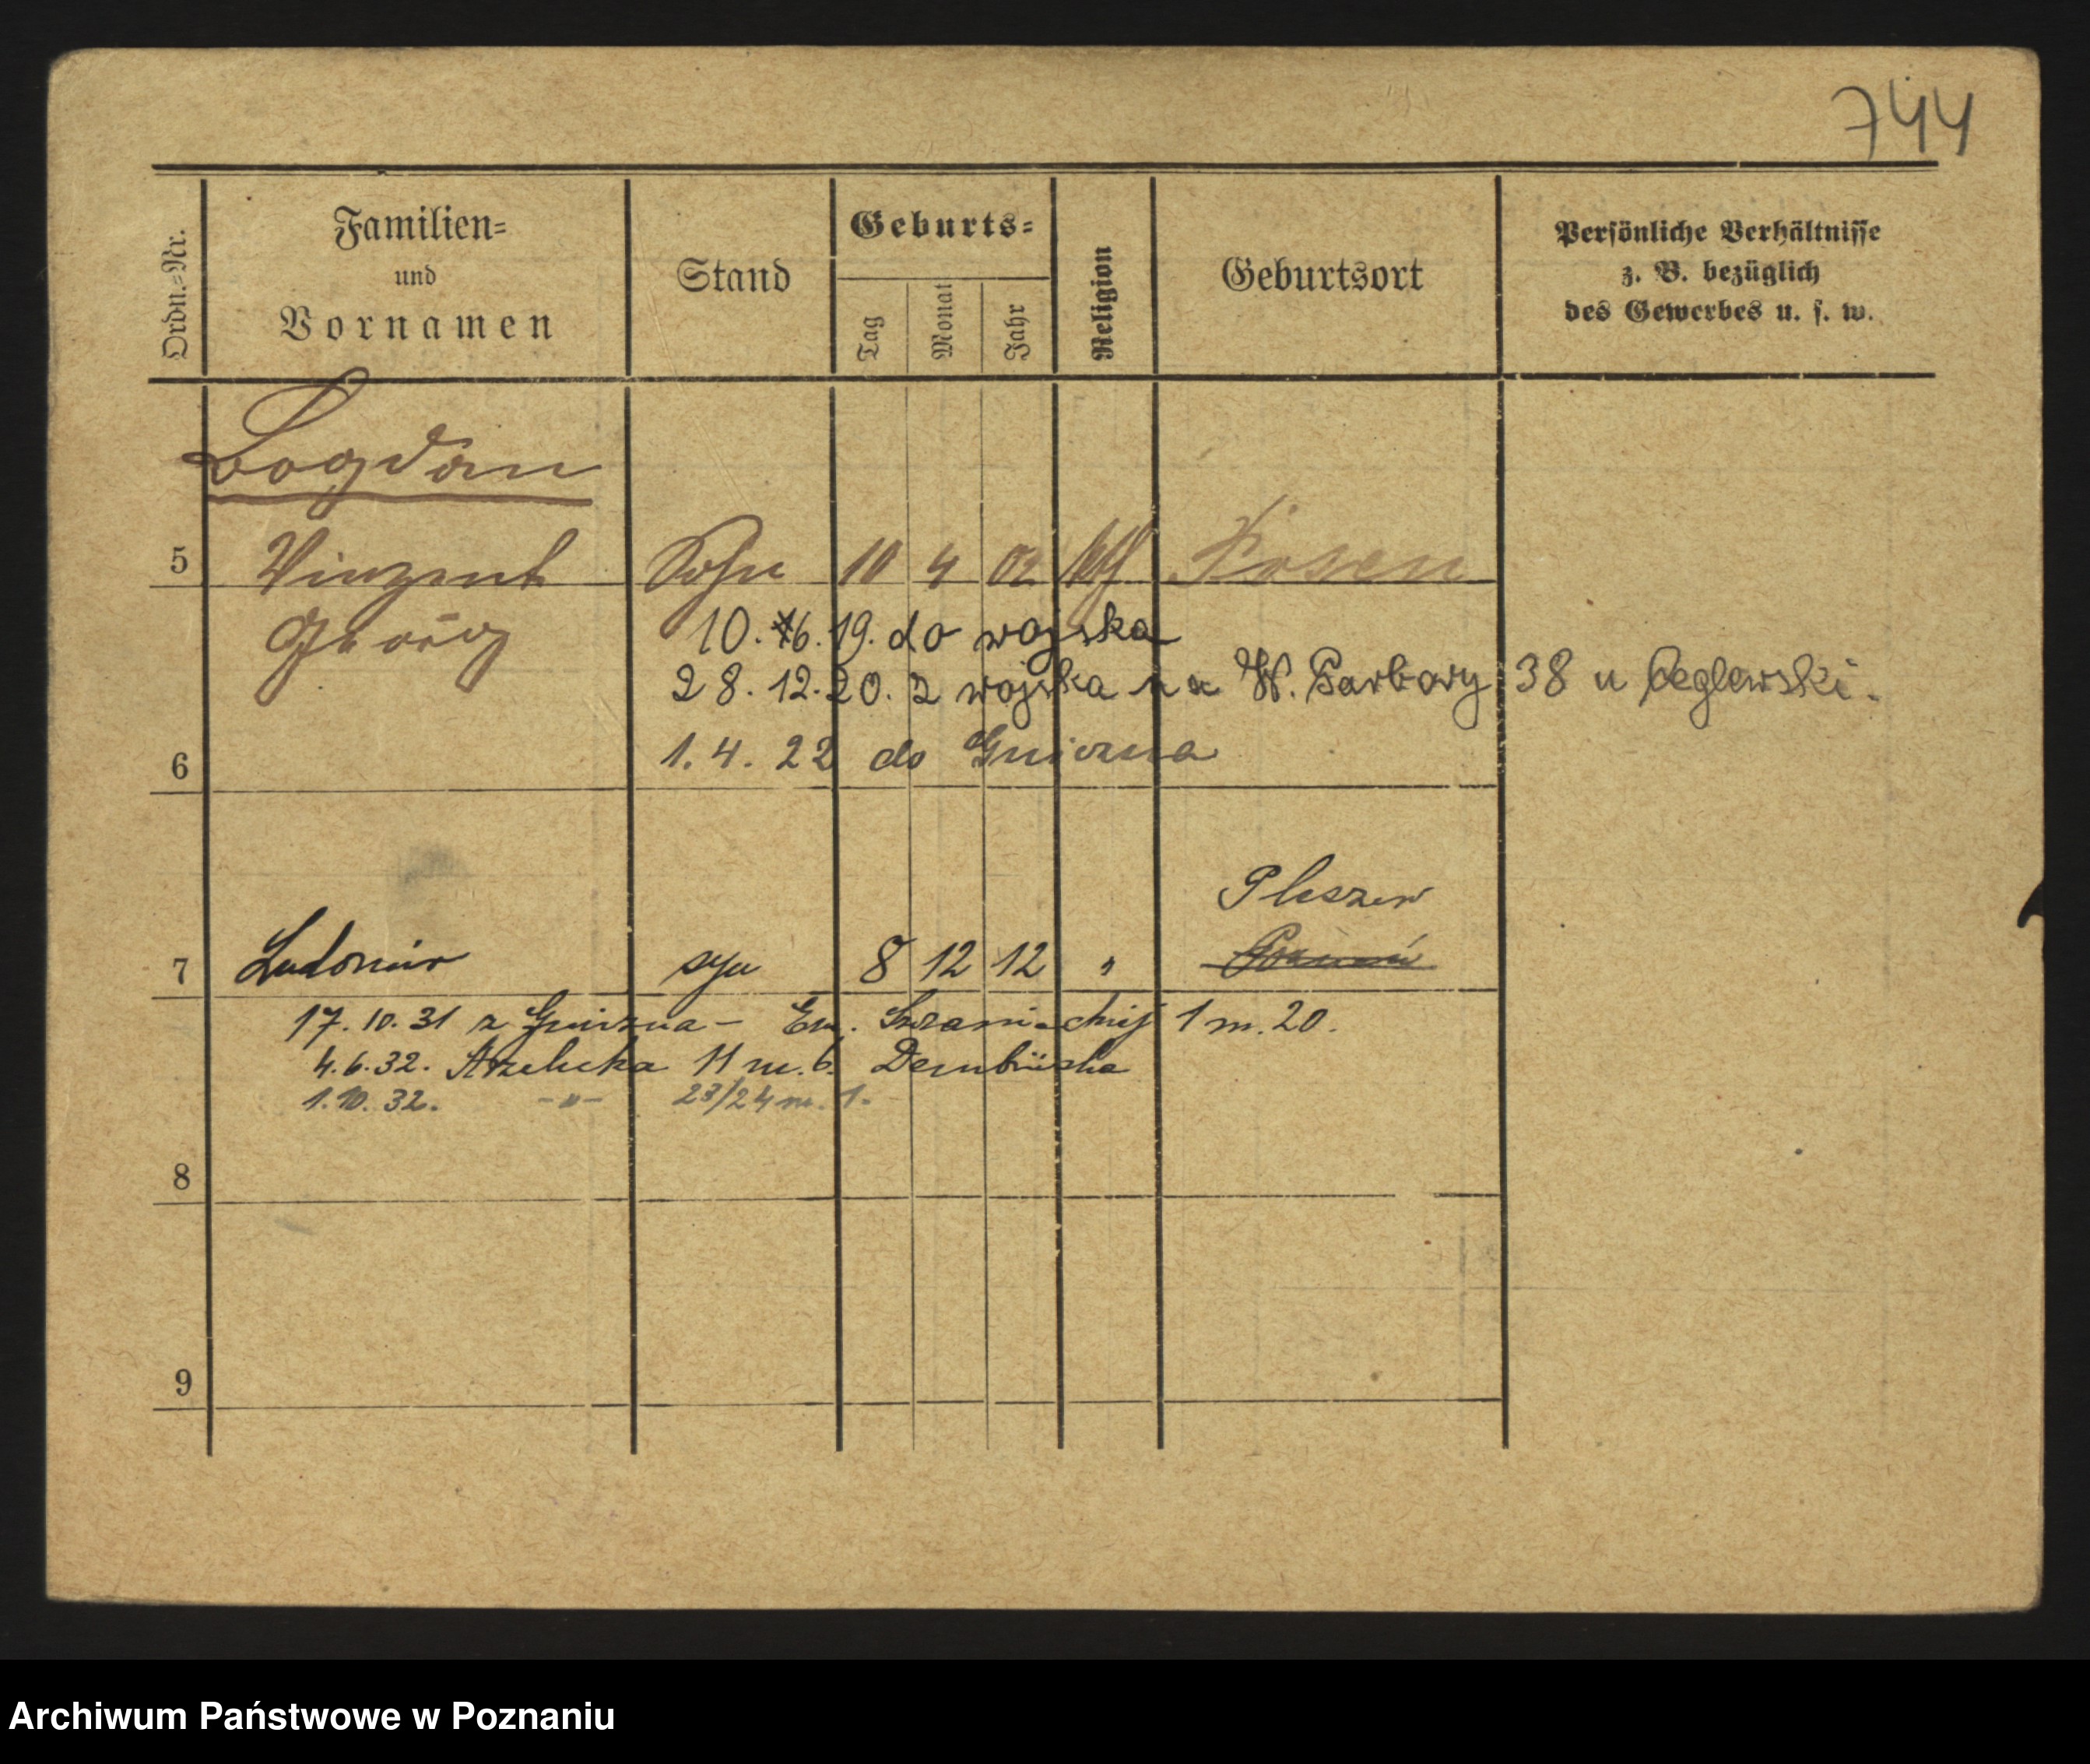 744
Ordn.=Nr.
Familien=
und
Vornamen
Stand
Geburts=
Tag
Monat
Jahr
Religion
Geburtsort
Persönliche Verhältnisse
z. B. bezüglich
des Gewerbes u. s. w.
Bogdan
5 Vinzent Sohn 10 4 02 kth Posen
Georg
10. 6. 19. do wojska
28. 12. 20. z wojska na W. Garbary 38 u Ceglewski.
6 1. 4. 22 do Gniezna
Pleszew
7 Ludomir syn 8 12 12 " Poznań
17. 10. 31 z Gniezna – Em. Szczanieckiej 1 m. 20.
4. 6. 32. Strzelecka 11 m. 6.
1. 10. 32. -"- 23/24 m. 1.
8
9
Archiwum Państwowe w Poznaniu